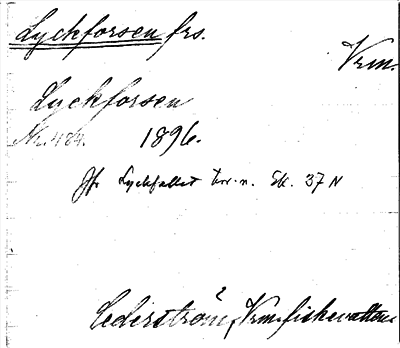 Lyckforsen frs.
Vrm.
Lyckforsen
Nr. 484. 1896.
Jfr Lyckfallet tor.n. Ek. 37 N
Cederström, Vrm. fiskevatten